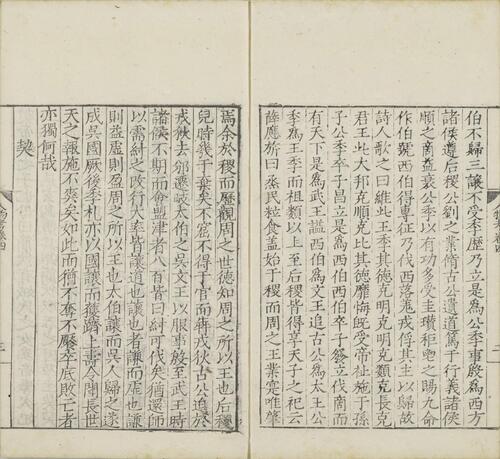 伯不歸三讓不受季歷乃立是為公季公季事殷為西方
諸侯遵后稷公劉之業脩古公遺道篤于行義諸侯
順之商益衰公季以有功多受圭瓚秬鬯之賜九命
作伯號西伯得專征乃伐西落鬼戎俘其主以歸故
詩人歌之曰維此王季其德克明克明克類克長克
君王此大邦克順克比其德靡悔既受帝祉施于孫
子公季卒子昌立是為西伯西伯卒子發立伐商而
有天下是為武王謚西伯為文王追古公為太王公
季為王季而祖類以上至后稷皆得享天子之祀云
薛應旂曰烝民粒食蓋始于稷而周之王業寔唯肇
焉余於稷而歷觀周之世德知周之所以王也后稷
兒時幾于棄矣不窋不得于官而竄戎狄古公迫於
戎狄去邠邊岐太伯之吳文王以服事殷至武王時
諸侯不期而會盟津者八百皆曰紂可伐矣猶還師
以需紂之改行大率皆讓道也讓也者謙而虛也謙
則益虛則盈周之所以王也太伯讓而吳人歸之遂
成吳國厥後季札亦以國讓而獲躋上壽令聞長世
天之報施不爽矣如此而猶不奪不厭卒底敗亡者
亦獨何哉
契